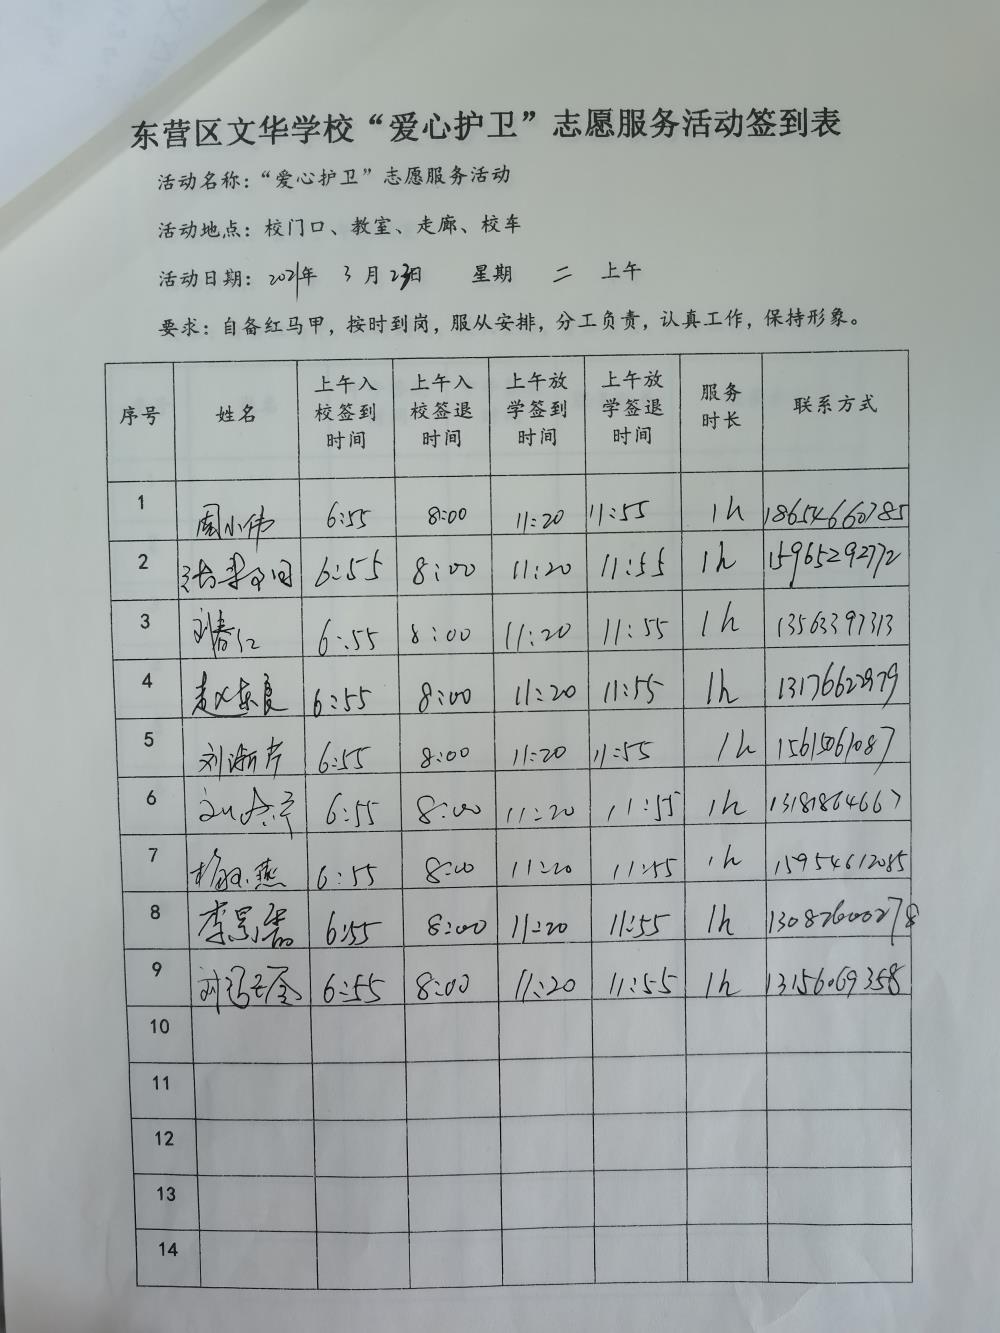 东营区文华学校“爱心护卫”志愿服务活动签到表
活动名称：“爱心护卫”志愿服务活动
活动地点：校门口、教室、走廊、校车
活动日期：2021年 3月23日 星期 二 上午
要求：自备红马甲，按时到岗，服从安排，分工负责，认真工作，保持形象。
序号 姓名 上午入校签到时间 上午入校签退时间 上午放学签到时间 上午放学签退时间 服务时长 联系方式
1 周小伟 6:55 8:00 11:20 11:55 1h 18654660785
2 6:55 8:00 11:20 11:55 1h 15965292772
3 刘春仁 6:55 8:00 11:20 11:55 1h 13563397313
4 赵东良 6:55 8:00 11:20 11:55 1h 13176622979
5 刘渐芹 6:55 8:00 11:20 11:55 1h 15615061087
6 6:55 8:00 11:20 11:55 1h 13181864667
7 6:55 8:00 11:20 11:55 1h 15954612085
8 6:55 8:00 11:20 11:55 1h 13082600278
9 6:55 8:00 11:20 11:55 1h 13156069358
10
11
12
13
14